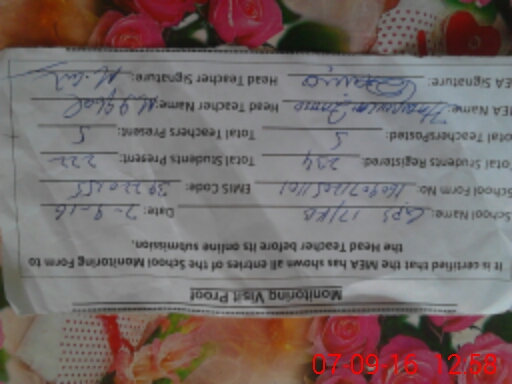 Monitoring Visit Proof
It is certified that the MEA has shown all entries of the School Monitoring Form to
the Head Teacher before its online submission.
School Name: GPS 17/KB Date: 7-9-16
School Form No: EMIS Code: 39220155
Total Students Registered: 234 Total Students Present: 222
Total TeachersPosted: 5 Total Teachers Present: 5
MEA Name: Head Teacher Name:
MEA Signature: Head Teacher Signature:
07-09-16 12:58